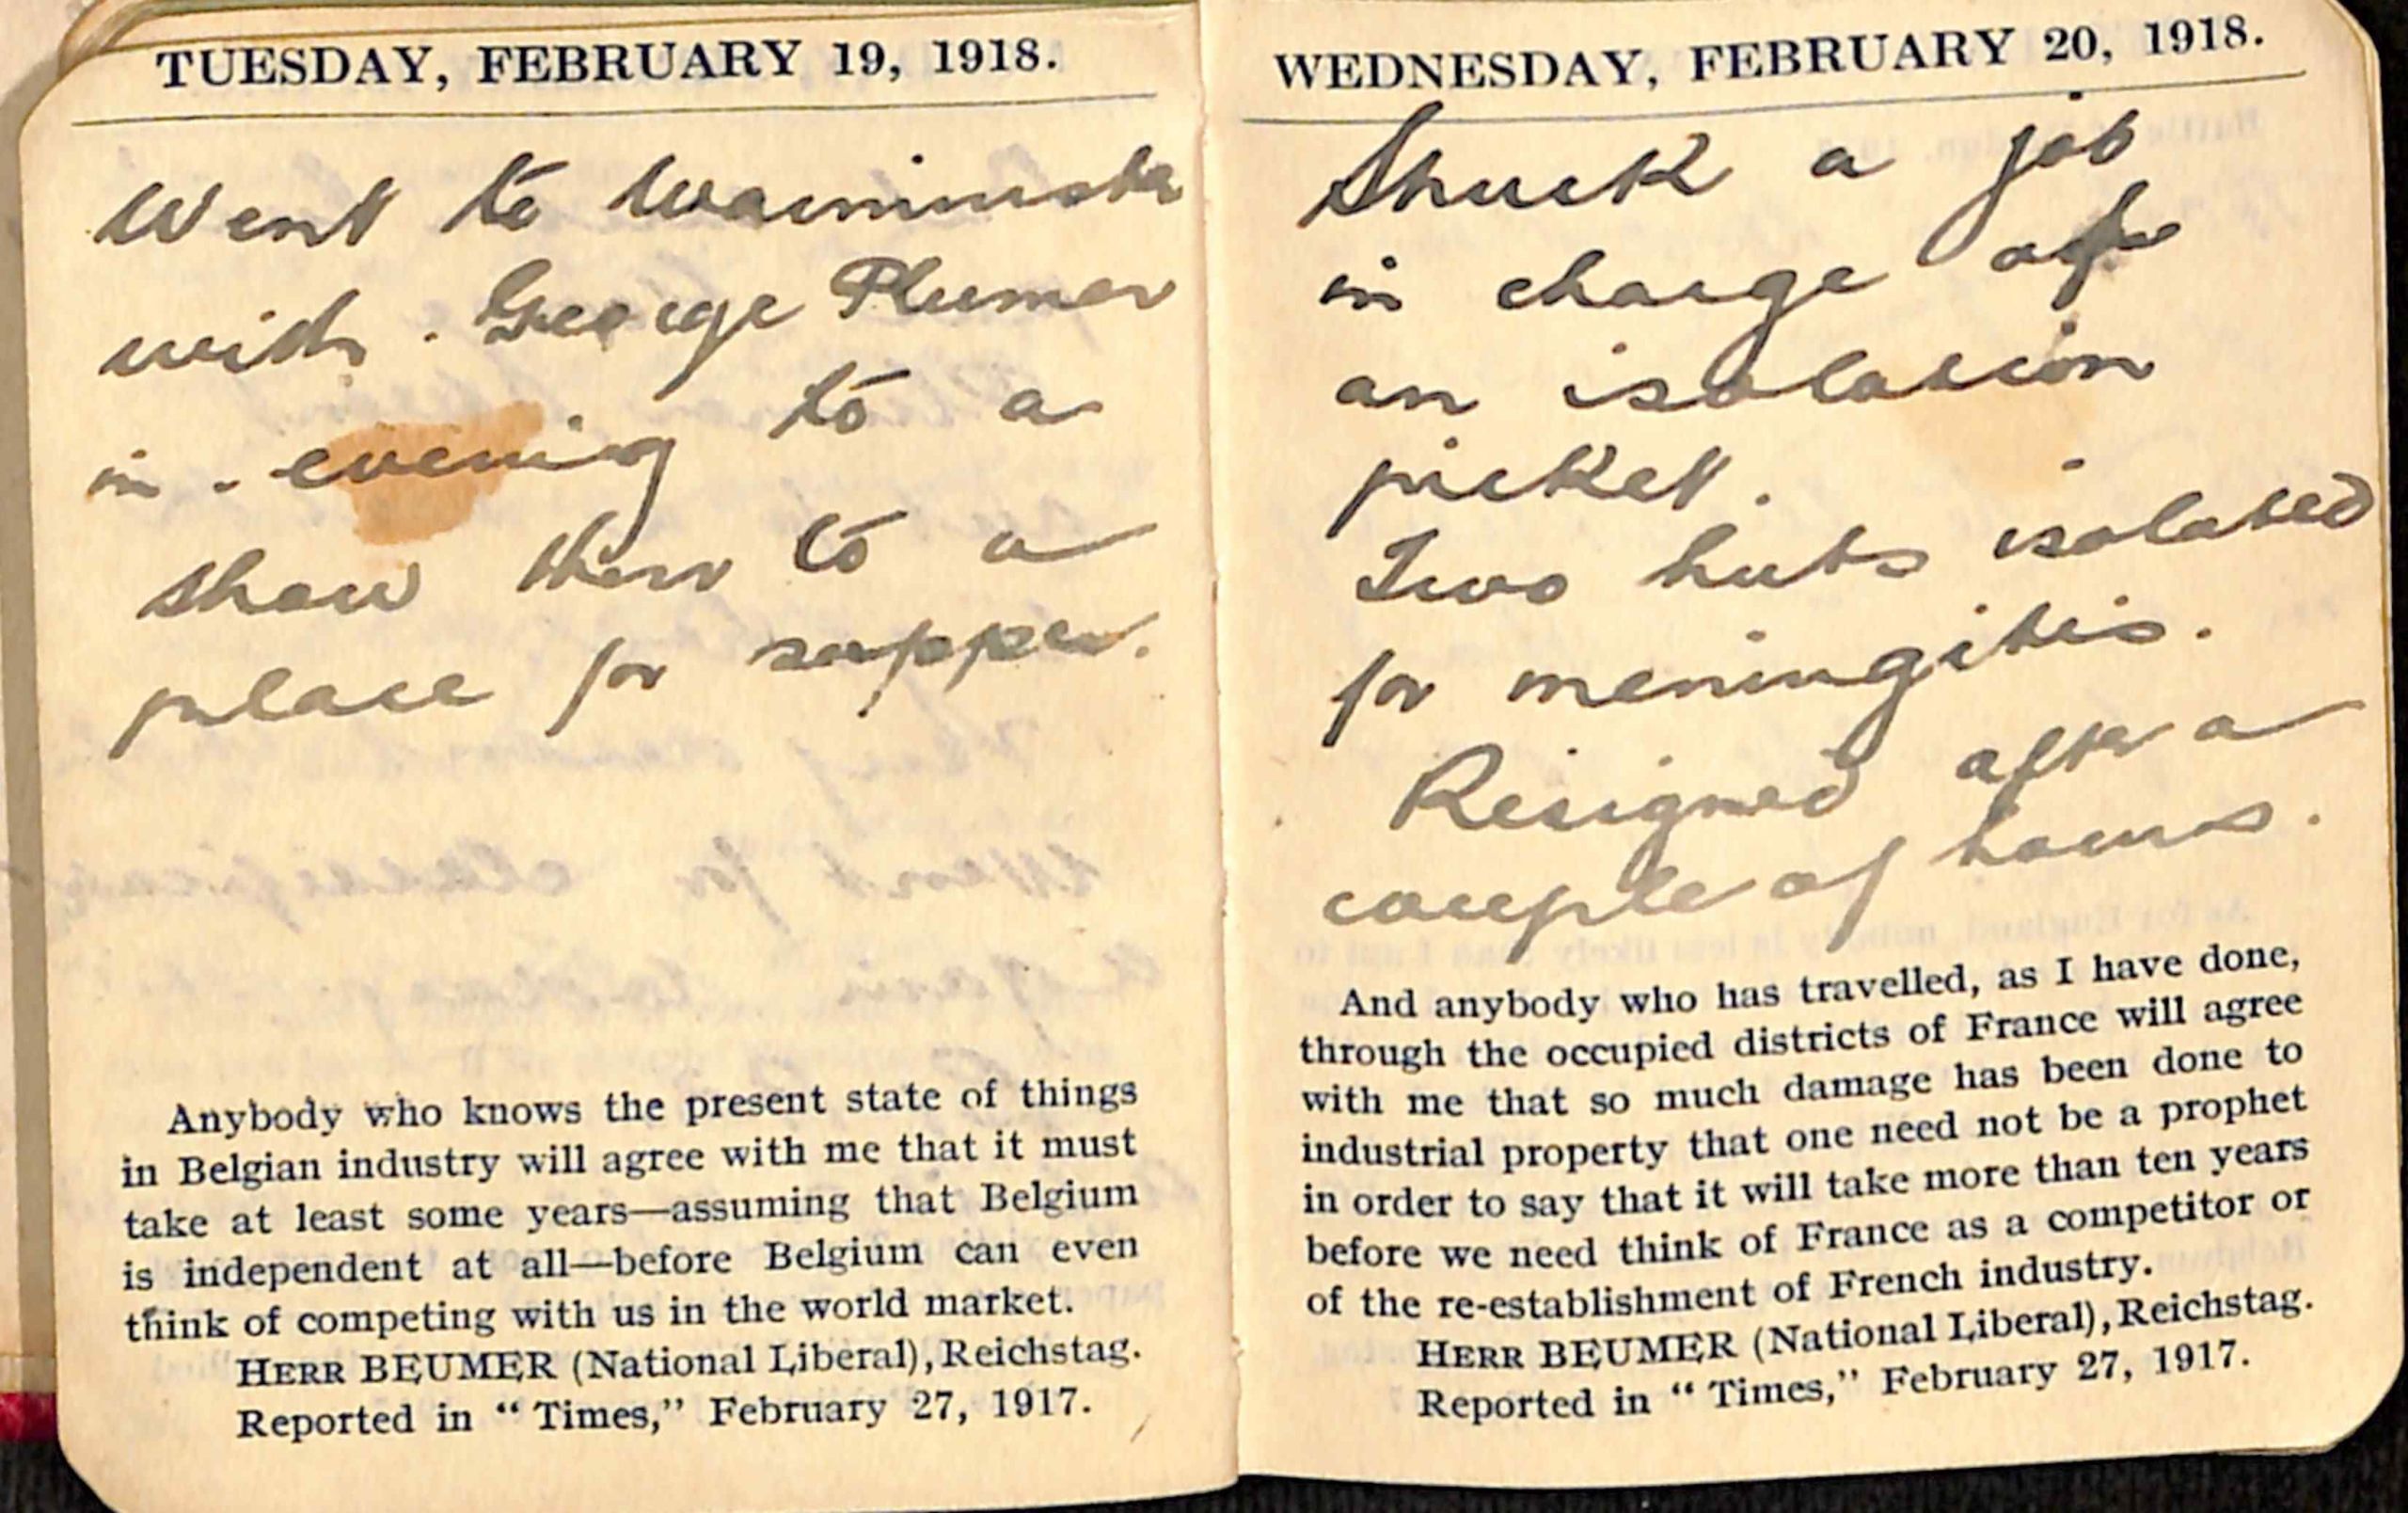 TUESDAY, FEBRUARY 19, 1918.
Went to Warminster
with . George Plumer
in . evening to a
show then to a
place for supper.
Anybody who knows the present state of things
in Belgian industry will agree with me that it must
take at least some years—assuming that Belgium
is independent at all—before Belgium can even
think of competing with us in the world market.
HERR BEUMER (National Liberal), Reichstag.
Reported in “Times,” February 27, 1917.
WEDNESDAY, FEBRUARY 20, 1918.
Struck a job
in charge of
an isolation
picket.
Two huts isolated
for meningitis.
Resigned after a
couple of hours.
And anybody who has travelled, as I have done,
through the occupied districts of France will agree
with me that so much damage has been done to
industrial property that one need not be a prophet
in order to say that it will take more than ten years
before we need think of France as a competitor or
of the re-establishment of French industry.
HERR BEUMER (National Liberal), Reichstag.
Reported in “Times,” February 27, 1917.